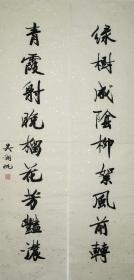 綠樹成陰柳絮風前轉
青霞射晚榴花芳豔濃
吴湖帆